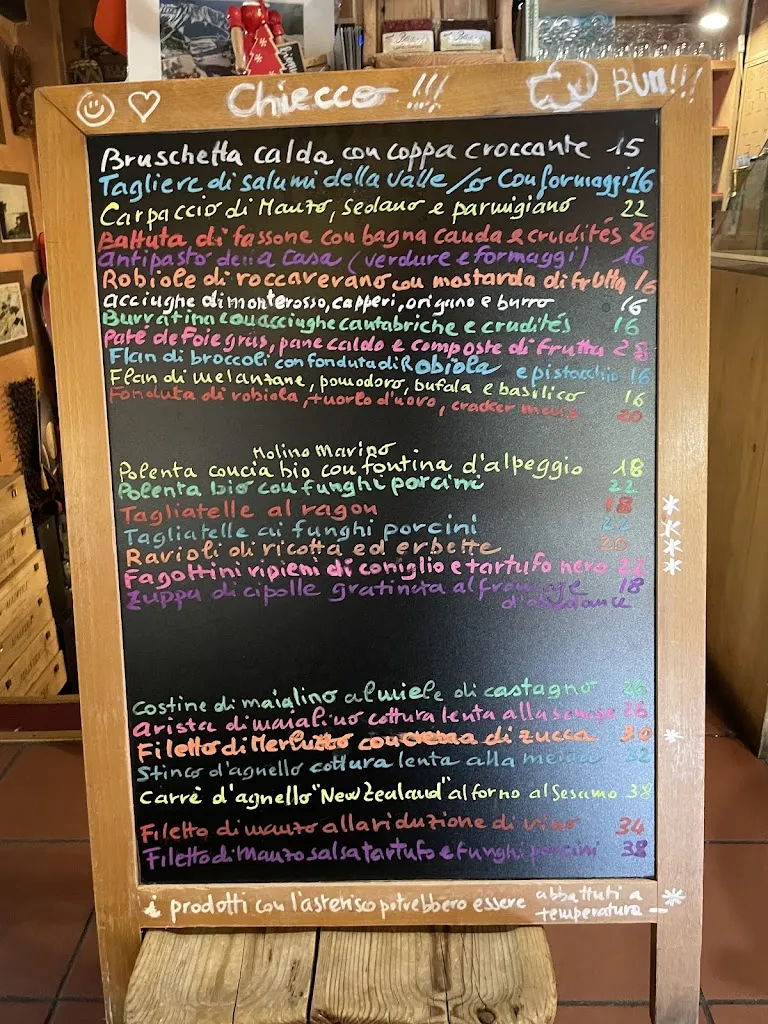 Chiecco !!! Burr!!!
Bruschetta calda con coppa croccante 15
Tagliere di salumi della valle /o con formaggi 16
Carpaccio di Manzo, sedano e parmigiano 22
Battuta di fassone con bagna cauda e crudités 26
Antipasto della casa (verdure e formaggi) 16
Robiole di roccaverano con mostarda di frutta 16
acciughe di monterosso, capperi, origano e burro 16
Burratina con acciughe cantabriche e crudités 16
Paté de foie gras, pane caldo e composte di frutta 28
Flan di broccoli con fonduta di Robiola e pistacchio 16
Flan di melanzane, pomodoro, bufala e basilico 16
Fonduta di robiola, tuorlo d'uovo, cracker mais 20
Molino Marino
Polenta concia bio con fontina d'alpeggio 18
Polenta bio con funghi porcini 22
Tagliatelle al ragou 18 *
Tagliatelle ai funghi porcini 22 *
Ravioli di ricotta ed erbette 20 *
Fagottini ripieni di coniglio e tartufo nero 22 *
Zuppa di cipolle gratinata al fromage 18
d'abondance
Costine di maialino al miele di castagno 26
Arista di maialino cottura lenta alla senape 26
Filetto di Merluzzo con crema di zucca 30 *
Stinco d'agnello cottura lenta alla menta 32
Carrè d'agnello "New Zealand" al forno al Sesamo 38
Filetto di manzo alla riduzione di vino 34
Filetto di Manzo salsa tartufo e funghi porcini 38
i prodotti con l'asterisco potrebbero essere abbattuti a
temperatura — *